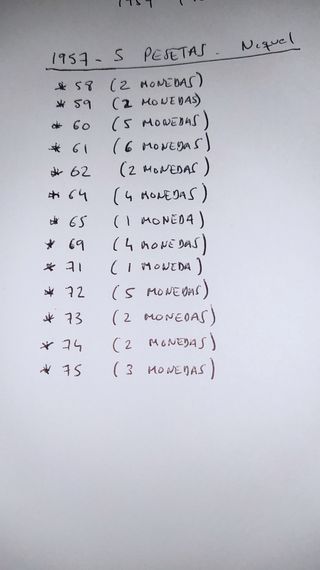 1957 - 5 PESETAS. Niquel
* 58 (2 MONEDAS)
* 59 (2 MONEDAS)
* 60 (5 MONEDAS)
* 61 (6 MONEDAS)
* 62 (2 MONEDAS)
* 64 (4 MONEDAS)
* 65 (1 MONEDA)
* 69 (4 MONEDAS)
* 71 (1 MONEDA)
* 72 (5 MONEDAS)
* 73 (2 MONEDAS)
* 74 (2 MONEDAS)
* 75 (3 MONEDAS)